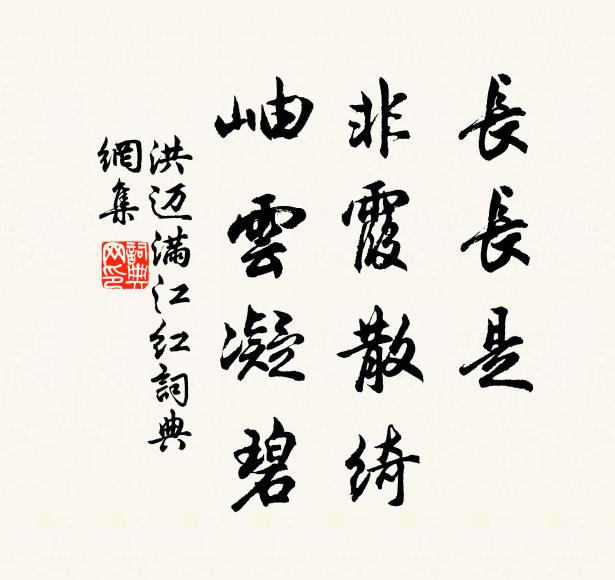 長長是
非霞散綺
岫雲凝碧
洪迈滿江红詞典
網集
詞典
网印